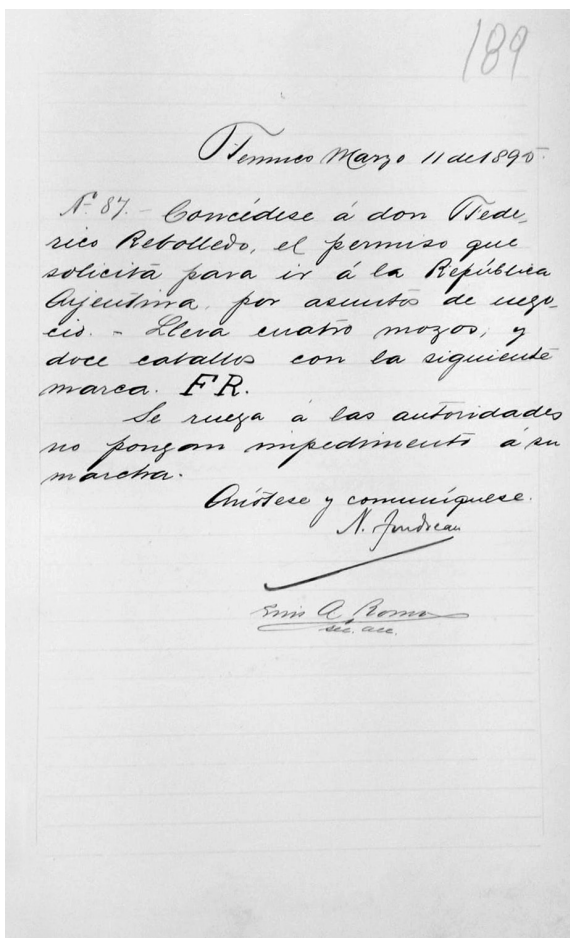 189
Temuco Marzo 11 de 1895.
Nº 87. - Concédese á don Fede-
rico Rebolledo, el permiso que
solicita para ir á la República
Arjentina, por asuntos de nego-
cio. - Lleva cuatro mozos, y
doce caballos con la siguiente
marca. FR.
Se ruega á las autoridades
no pongan impedimento á su
marcha.
Anótese y comuníquese.
N.
A. Romo
sec. acc.